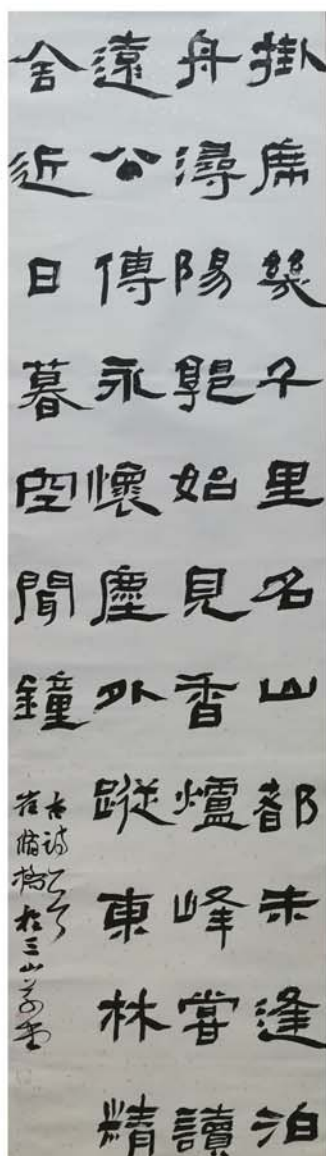 掛席幾千里名山都未逢泊
舟潯陽郭始見香爐峰嘗讀
遠公傳永懷塵外蹤東林精
舍近日暮空聞鐘
古詩
崔 於三山草堂